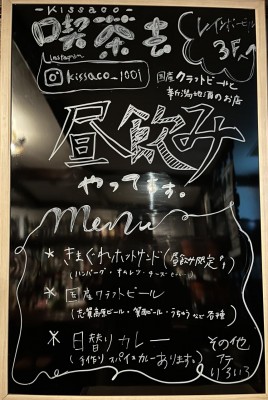 -Kissaco-
喫茶去
レインボービル
3F
Instagram
kissaco_1001
国産クラフトビールと
新潟地酒のお店
昼飲み
やってます。
menu
* きまぐれホットサンド(昼飲み限定!)
(ハンバーグ・オムレツ・チーズ
* 国産クラフトビール
(志賀高原ビール・箕面ビール・うちゅうなど各種)
* 日替りカレー
(手作りスパイスカレーあります。)
その他
アテ
いろいろ